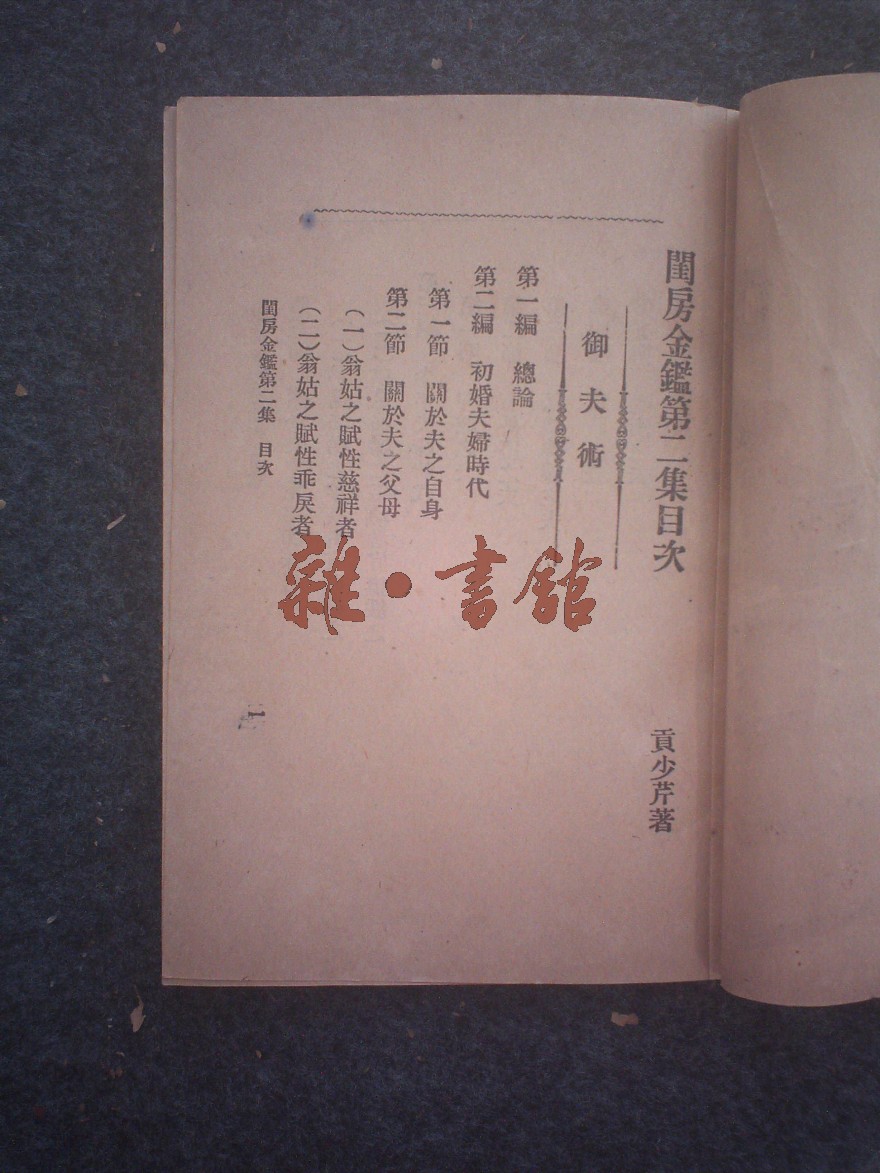 閨房金鑑第二集目次
貢少芹著
御夫術
第一編　總論
第二編　初婚夫婦時代
第一節　關於夫之自身
第二節　關於夫之父母
（一）翁姑之賦性慈祥者
（二）翁姑之賦性乖戾者
閨房金鑑第二集　目次
一
雜·書館